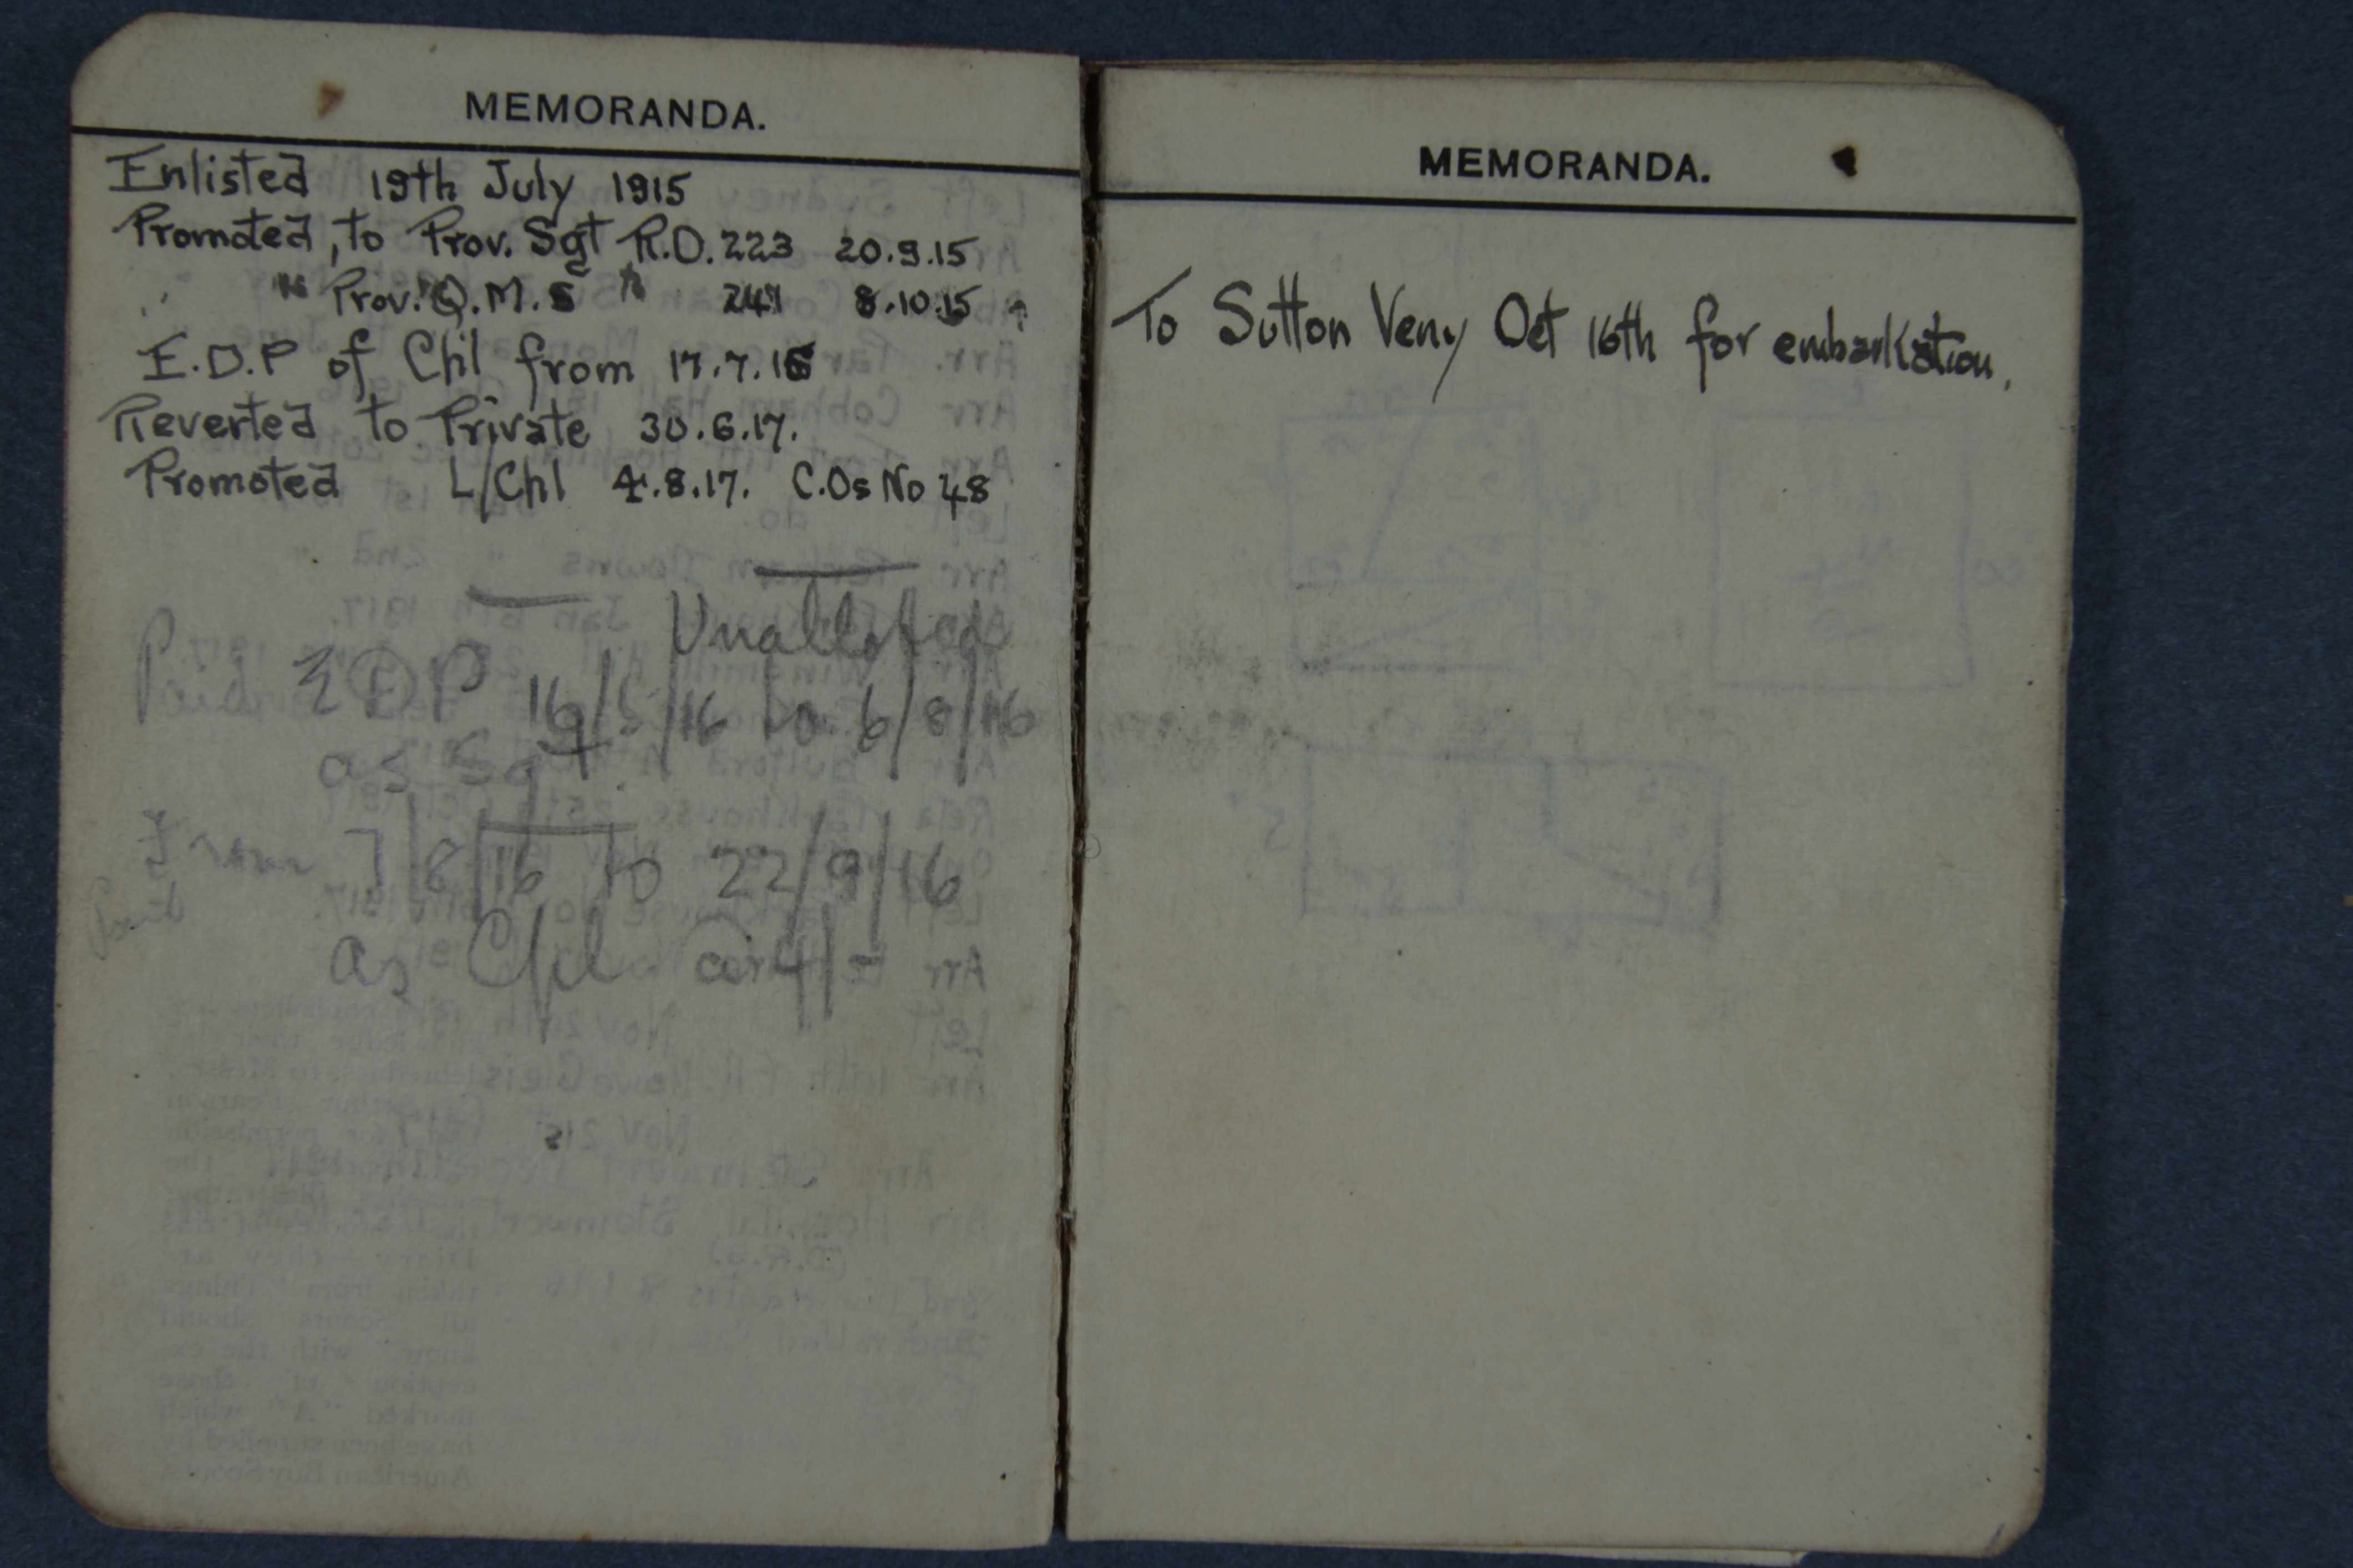 MEMORANDA.
Enlisted 19th July 1915
Promoted, to Prov. Sgt R.O. 223 20.9.15
" " Prov. Q.M.S " 247 8.10.15
E.D.P of Cpl from 17.7.16
Reverted to Private 30.6.17.
Promoted L/Cpl 4.8.17. C.Os No 48
Unallotted
EDP 16/5/16 to 6/8/16
as Sgt
From 7/8/16 to 22/9/16
as Cpl
MEMORANDA.
To Sutton Veny Oct 16th for embarkation.